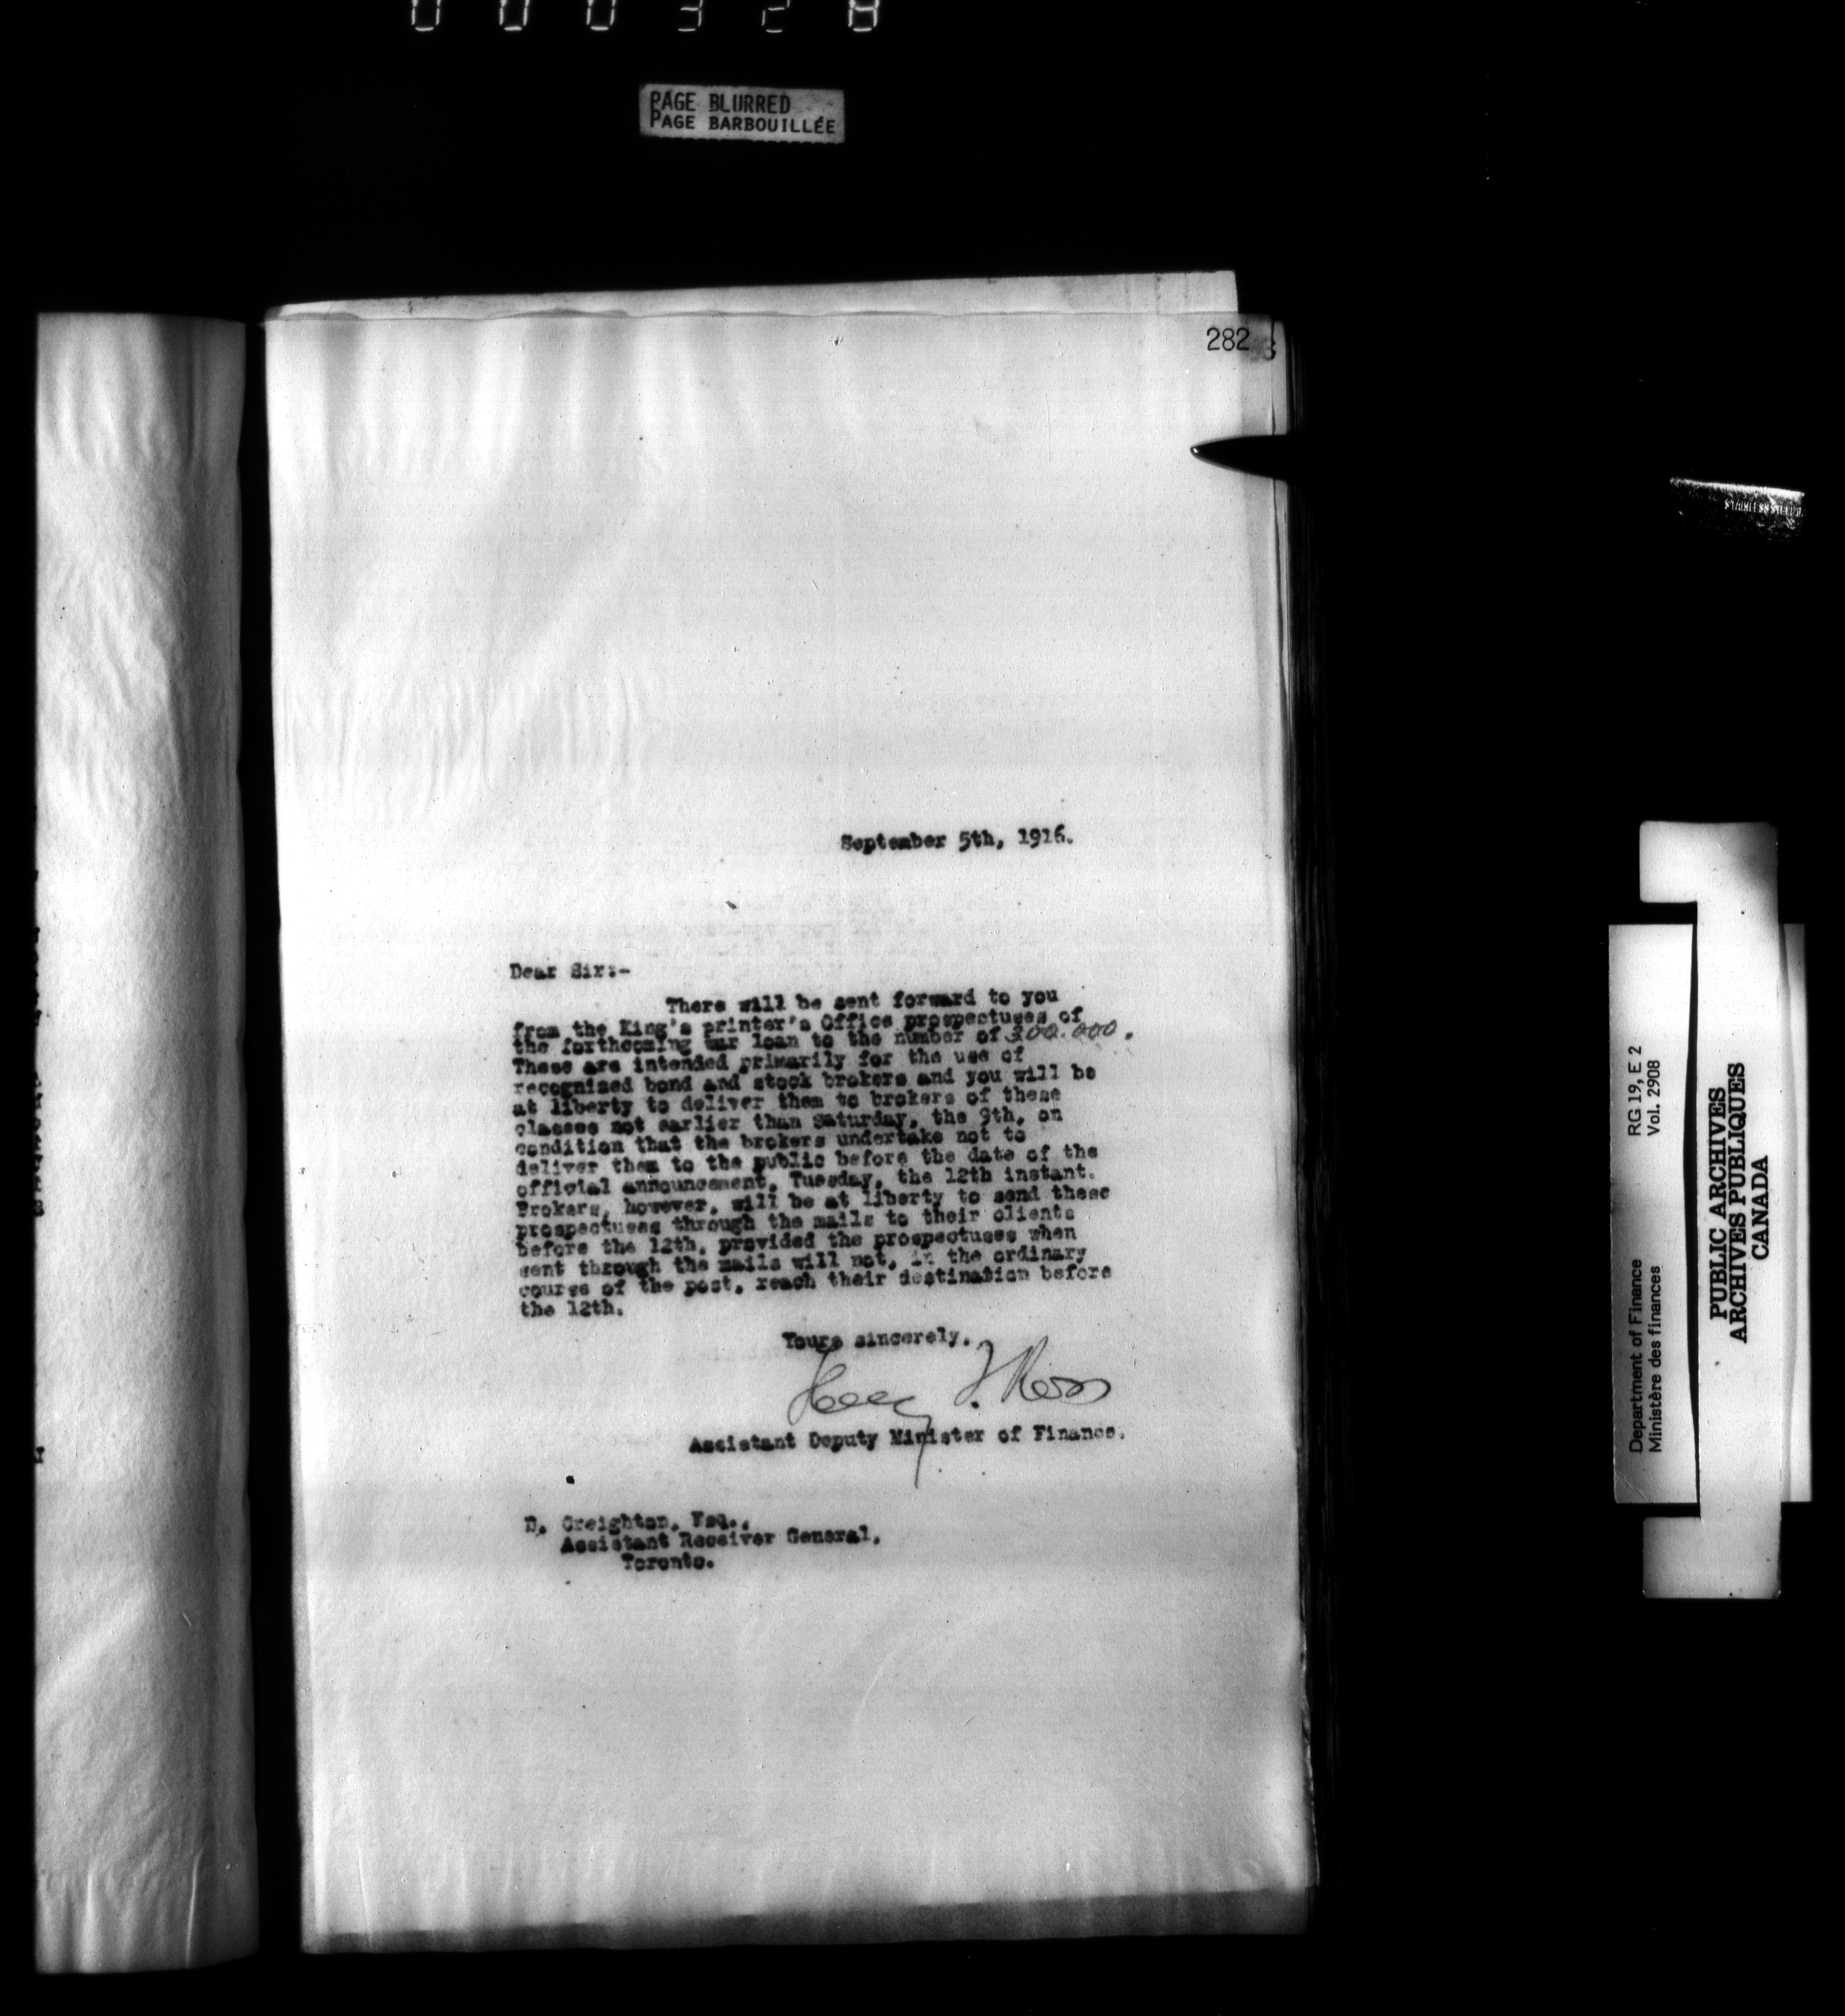 000328
PAGE BLURRED
PAGE BARBOUILLÉE
282
September 5th, 1916.
Dear Sir:-
There will be sent forward to you
from the King's printer's Office prospectuses of
the forthcoming war loan to the number of 300.000.
These are intended primarily for the use of
recognized bond and stock brokers and you will be
at liberty to deliver them to brokers of these
classes not earlier than Saturday, the 9th, on
condition that the brokers undertake not to
deliver them to the public before the date of the
official announcement, Tuesday, the 12th instant.
Brokers, however, will be at liberty to send these
prospectuses through the mails to their clients
before the 12th, provided the prospectuses when
sent through the mails will not, in the ordinary
course of the post, reach their destination before
the 12th.
Yours sincerely,
Assistant Deputy Minister of Finance.
D. Creighton, Esq.,
Assistant Receiver General,
Toronto.
Department of Finance RG 19, E 2
Ministère des finances Vol. 2908
PUBLIC ARCHIVES
ARCHIVES PUBLIQUES
CANADA